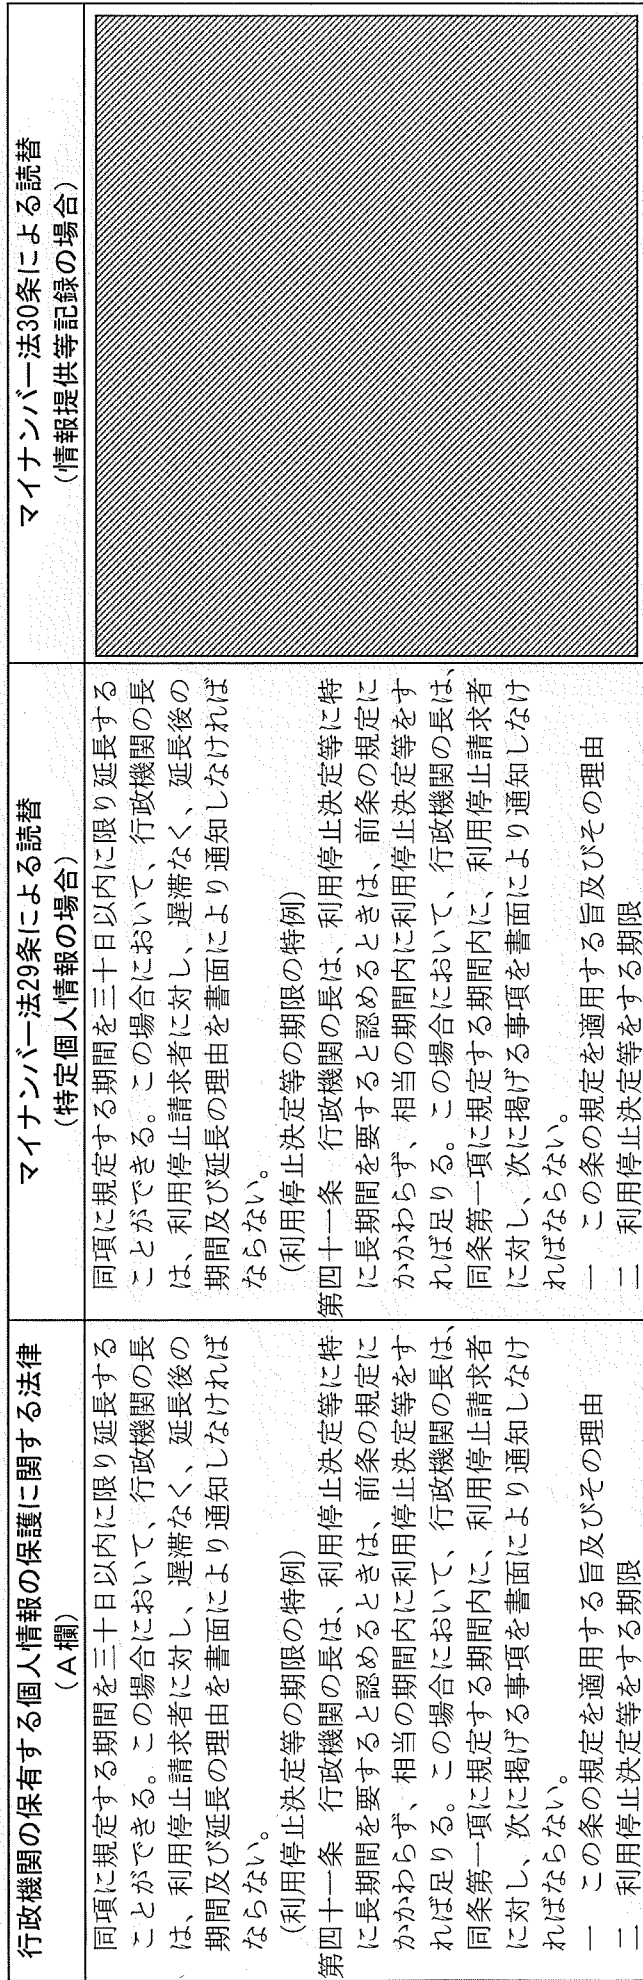 行政機関の保有する個人情報の保護に関する法律
(A欄)
同項に規定する期間を三十日以内に限り延長する
ことができる。この場合において、行政機関の長
は、利用停止請求者に対し、遅滞なく、延長後の
期間及び延長の理由を書面により通知しなければ
ならない。
(利用停止決定等の期限の特例)
第四十一条 行政機関の長は、利用停止決定等に特
に長期間を要すると認めるときは、前条の規定に
かかわらず、相当の期間内に利用停止決定等をす
れば足りる。この場合において、行政機関の長は、
同条第一項に規定する期間内に、利用停止請求者
に対し、次に掲げる事項を書面により通知しなけ
ればならない。
一 この条の規定を適用する旨及びその理由
二 利用停止決定等をする期限
マイナンバー法29条による読替
(特定個人情報の場合)
同項に規定する期間を三十日以内に限り延長する
ことができる。この場合において、行政機関の長
は、利用停止請求者に対し、遅滞なく、延長後の
期間及び延長の理由を書面により通知しなければ
ならない。
(利用停止決定等の期限の特例)
第四十一条 行政機関の長は、利用停止決定等に特
に長期間を要すると認めるときは、前条の規定に
かかわらず、相当の期間内に利用停止決定等をす
れば足りる。この場合において、行政機関の長は、
同条第一項に規定する期間内に、利用停止請求者
に対し、次に掲げる事項を書面により通知しなけ
ればならない。
一 この条の規定を適用する旨及びその理由
二 利用停止決定等をする期限
マイナンバー法30条による読替
(情報提供等記録の場合)